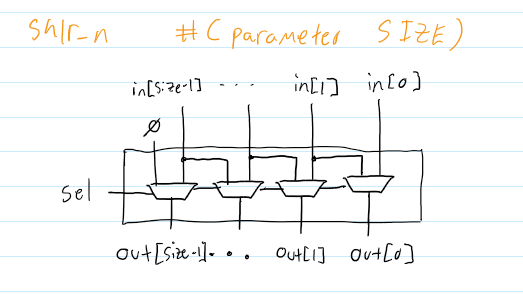 shlr_n #( parameter SIZE )
in[size-1] . . . in[1] in[0]
Ø
sel
out[size-1] . . . out[1] out[0]